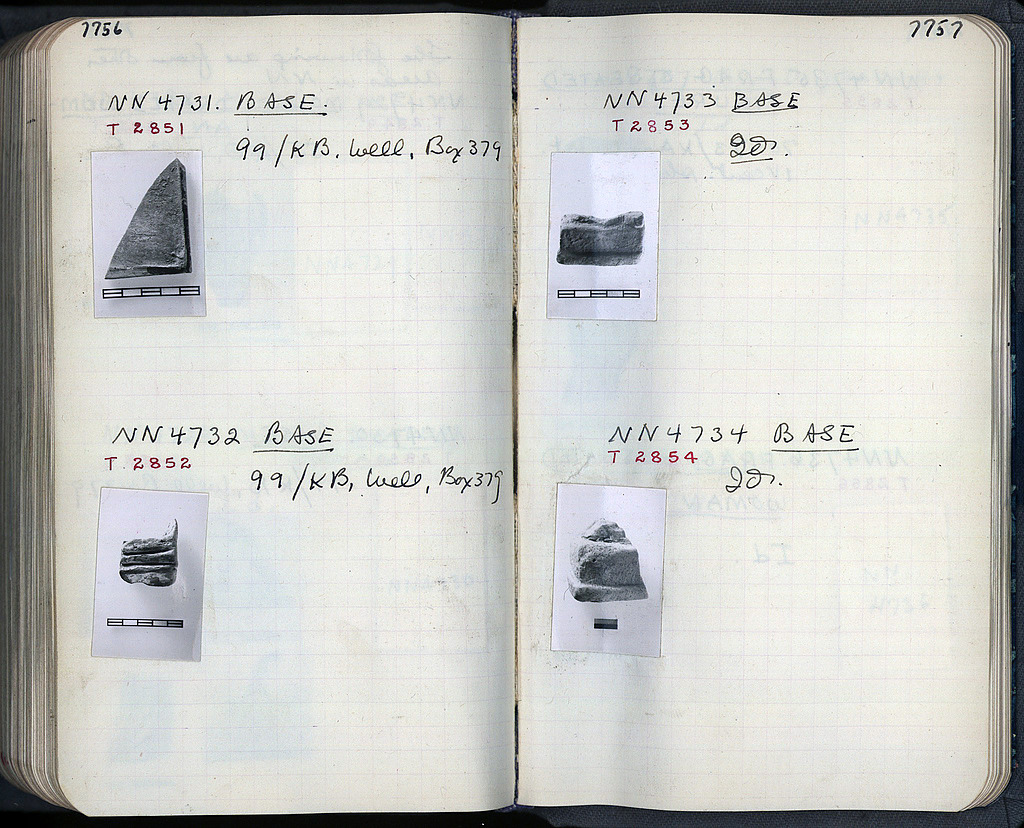 7756
NN 4731. BASE.
T 2851
99/KB, Well, Box 379
NN 4732 BASE
T 2852
99/KB, Well, Box 379
7757
NN 4733 BASE
T 2853
Id.
NN 4734 BASE
T 2854
Id.